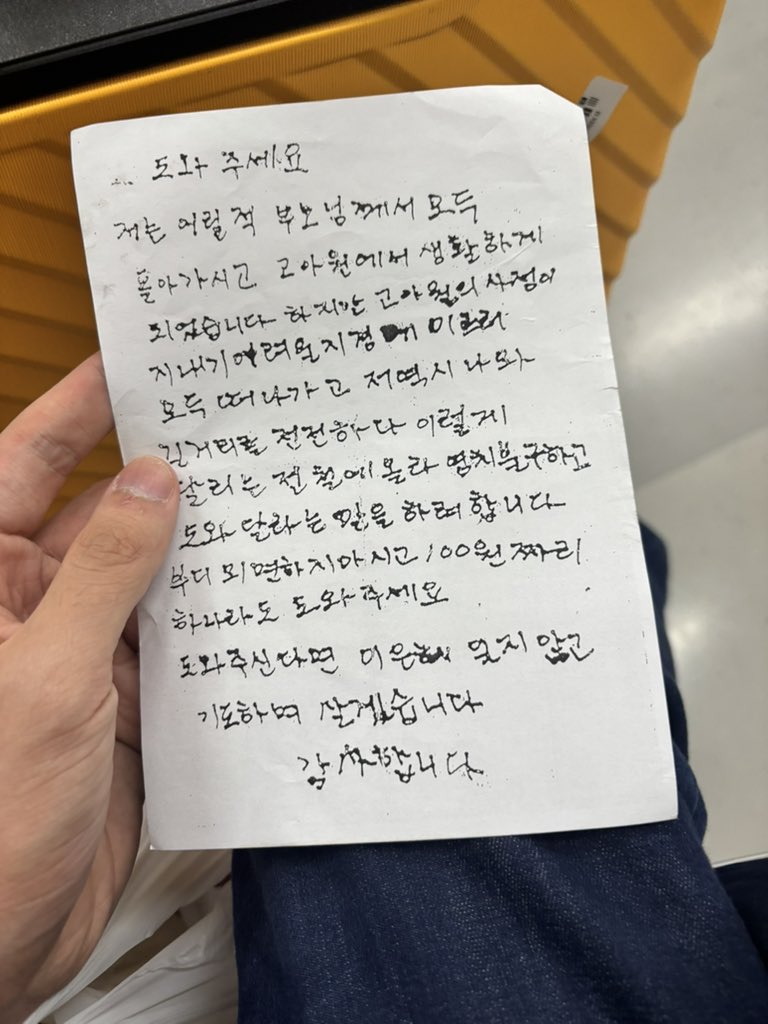 도와 주세요
저는 어릴적 부모님께서 모두
돌아가시고 고아원에서 생활하게
되었습니다 하지만 고아원의 사정이
지내기 어려울지경에 이르러
모두 떠나가고 저역시 나와
길거리를 전전하다 이렇게
달리는 전철에 올라 염치불구하고
도와 달라는 말을 하려 합니다
부디 외면하지마시고 100원짜리
하나라도 도와주세요
도와주신다면 이은혜 잊지 않고
기도하며 살겠습니다
감사합니다